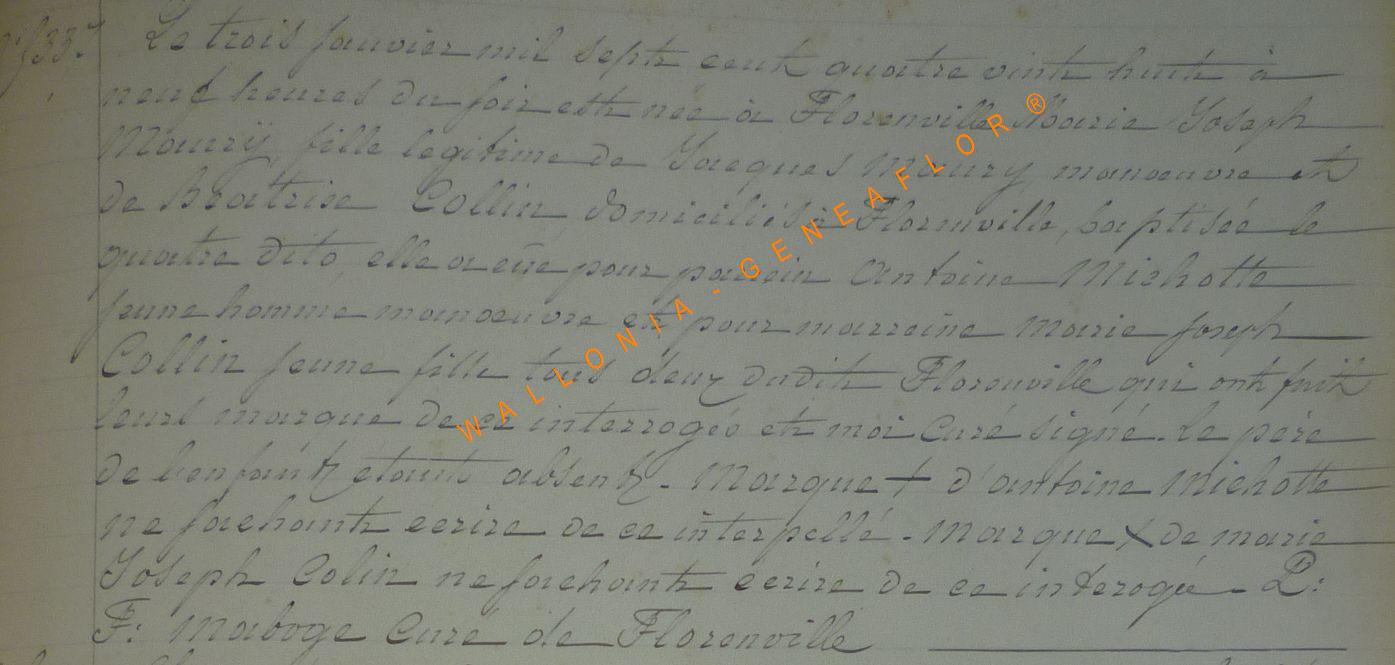 n° 533.
Le trois janvier mil sept cent quatre vint huit à
neuf heures du soir est née à Florenville Marie Joseph
Maury, fille legitime de Jacques Maury, manoeuvre et
de Beatrise Collin domiciliés à Florenville, baptisée le
quatre dito, elle a eue pour parrein Antoine Michotte
jeune homme manoeuvre et pour marreine Marie joseph
Collin jeune fille tous deux dudit Florenville qui ont fait
leurs marque de ce interrogés et moi Curé signé. Le père
de l'enfant etant absent. Marque + d'antoine Michotte
ne sachant ecrire de ce interpellé. Marque X de marie
Joseph Colin ne sachant ecrire de ce interogée. P:
F: Maboge Curé de Florenville
WALLONIA - GENEAFLOR®